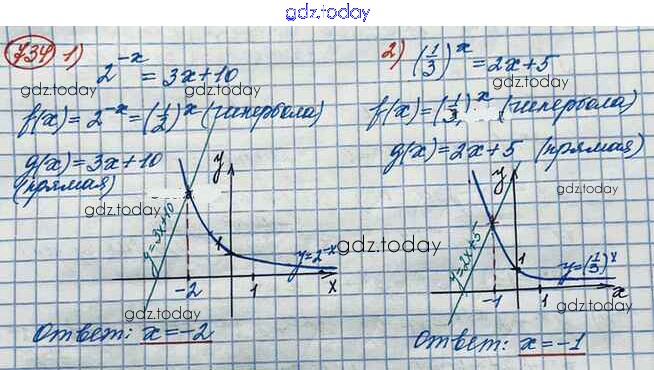 gdz.today
734 1)
2^{-x} = 3x+10
gdz.today
f(x) = 2^{-x} = (1/2)^x (гипербола)
gdz.today
g(x) = 3x+10
(прямая)
gdz.today
y
y=3x+10
y=2^{-x}
gdz.today
-2
1
1
x
Ответ: x=-2
gdz.today
2) (1/3)^x = 2x+5
gdz.today
f(x) = (1/3)^x (гипербола)
gdz.today
g(x) = 2x+5 (прямая)
gdz.today
y
y=2x+5
y=(1/3)^x
gdz.today
-1
1
1
x
Ответ: x=-1
gdz.today